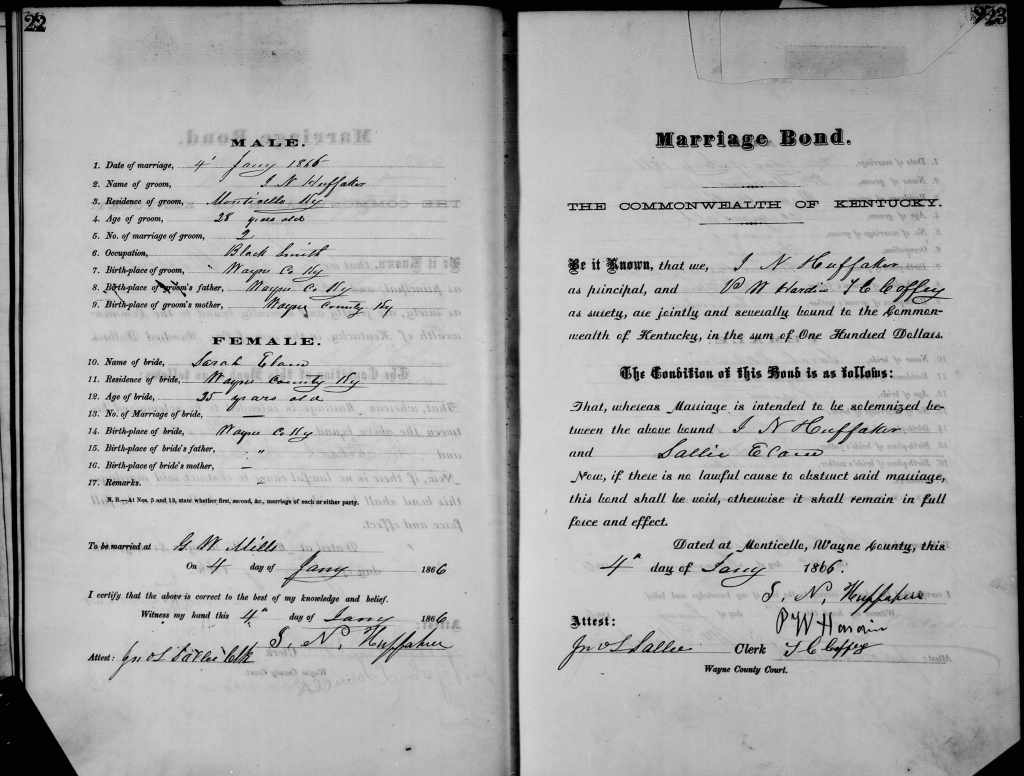 22
MALE.
1. Date of marriage, 4' Jany 1866
2. Name of groom, I N Huffaker
3. Residence of groom, Monticello Ky
4. Age of groom, 28 years old
5. No. of marriage of groom, 2
6. Occupation, Black Smith
7. Birth-place of groom, " Wayne Co Ky
8. Birth-place of groom's father, Wayne Co Ky
9. Birth-place of groom's mother, Wayne County Ky
FEMALE.
10. Name of bride, Sarah Elam
11. Residence of bride, Wayne County Ky
12. Age of bride, 25 years old
13. No. of Marriage of bride, —
14. Birth-place of bride, Wayne Co Ky
15. Birth-place of bride's father, "
16. Birth-place of bride's mother, —
17. Remarks.
N. B.—At Nos. 5 and 13, state whether first, second, &c., marriage of each or either party.
To be married at G W Mills
On 4 day of Jany 1866
I certify that the above is correct to the best of my knowledge and belief.
Witness my hand this 4th day of Jany 1866
I. N. Huffaker
Attest: Jno S Sallee Clk
23
Marriage Bond.
THE COMMONWEALTH OF KENTUCKY.
Be it Known, that we, I N Huffaker
as principal, and P W Hardin T C Coffey
as surety, are jointly and severally bound to the Common-
wealth of Kentucky, in the sum of One Hundred Dollars.
The Condition of this Bond is as follows:
That, whereas Marriage is intended to be solemnized be-
tween the above bound I N Huffaker
and Sallie Elam
Now, if there is no lawful cause to obstruct said marriage,
this bond shall be void, otherwise it shall remain in full
force and effect.
Dated at Monticello, Wayne County, this
4th day of Jany 1866.
I. N. Huffaker
P W Hardin
Attest:
Jno S Sallee Clerk T C Coffey
Wayne County Court.